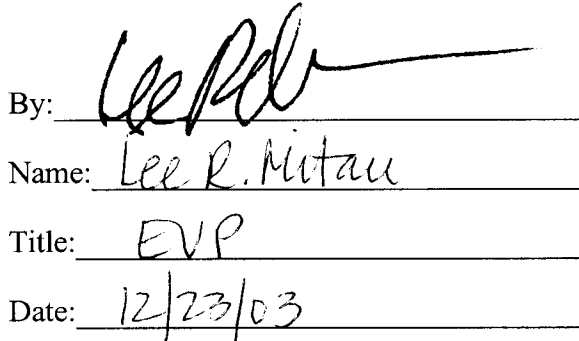 By:
Name: Lee R. Mitau
Title: EVP
Date: 12/23/03